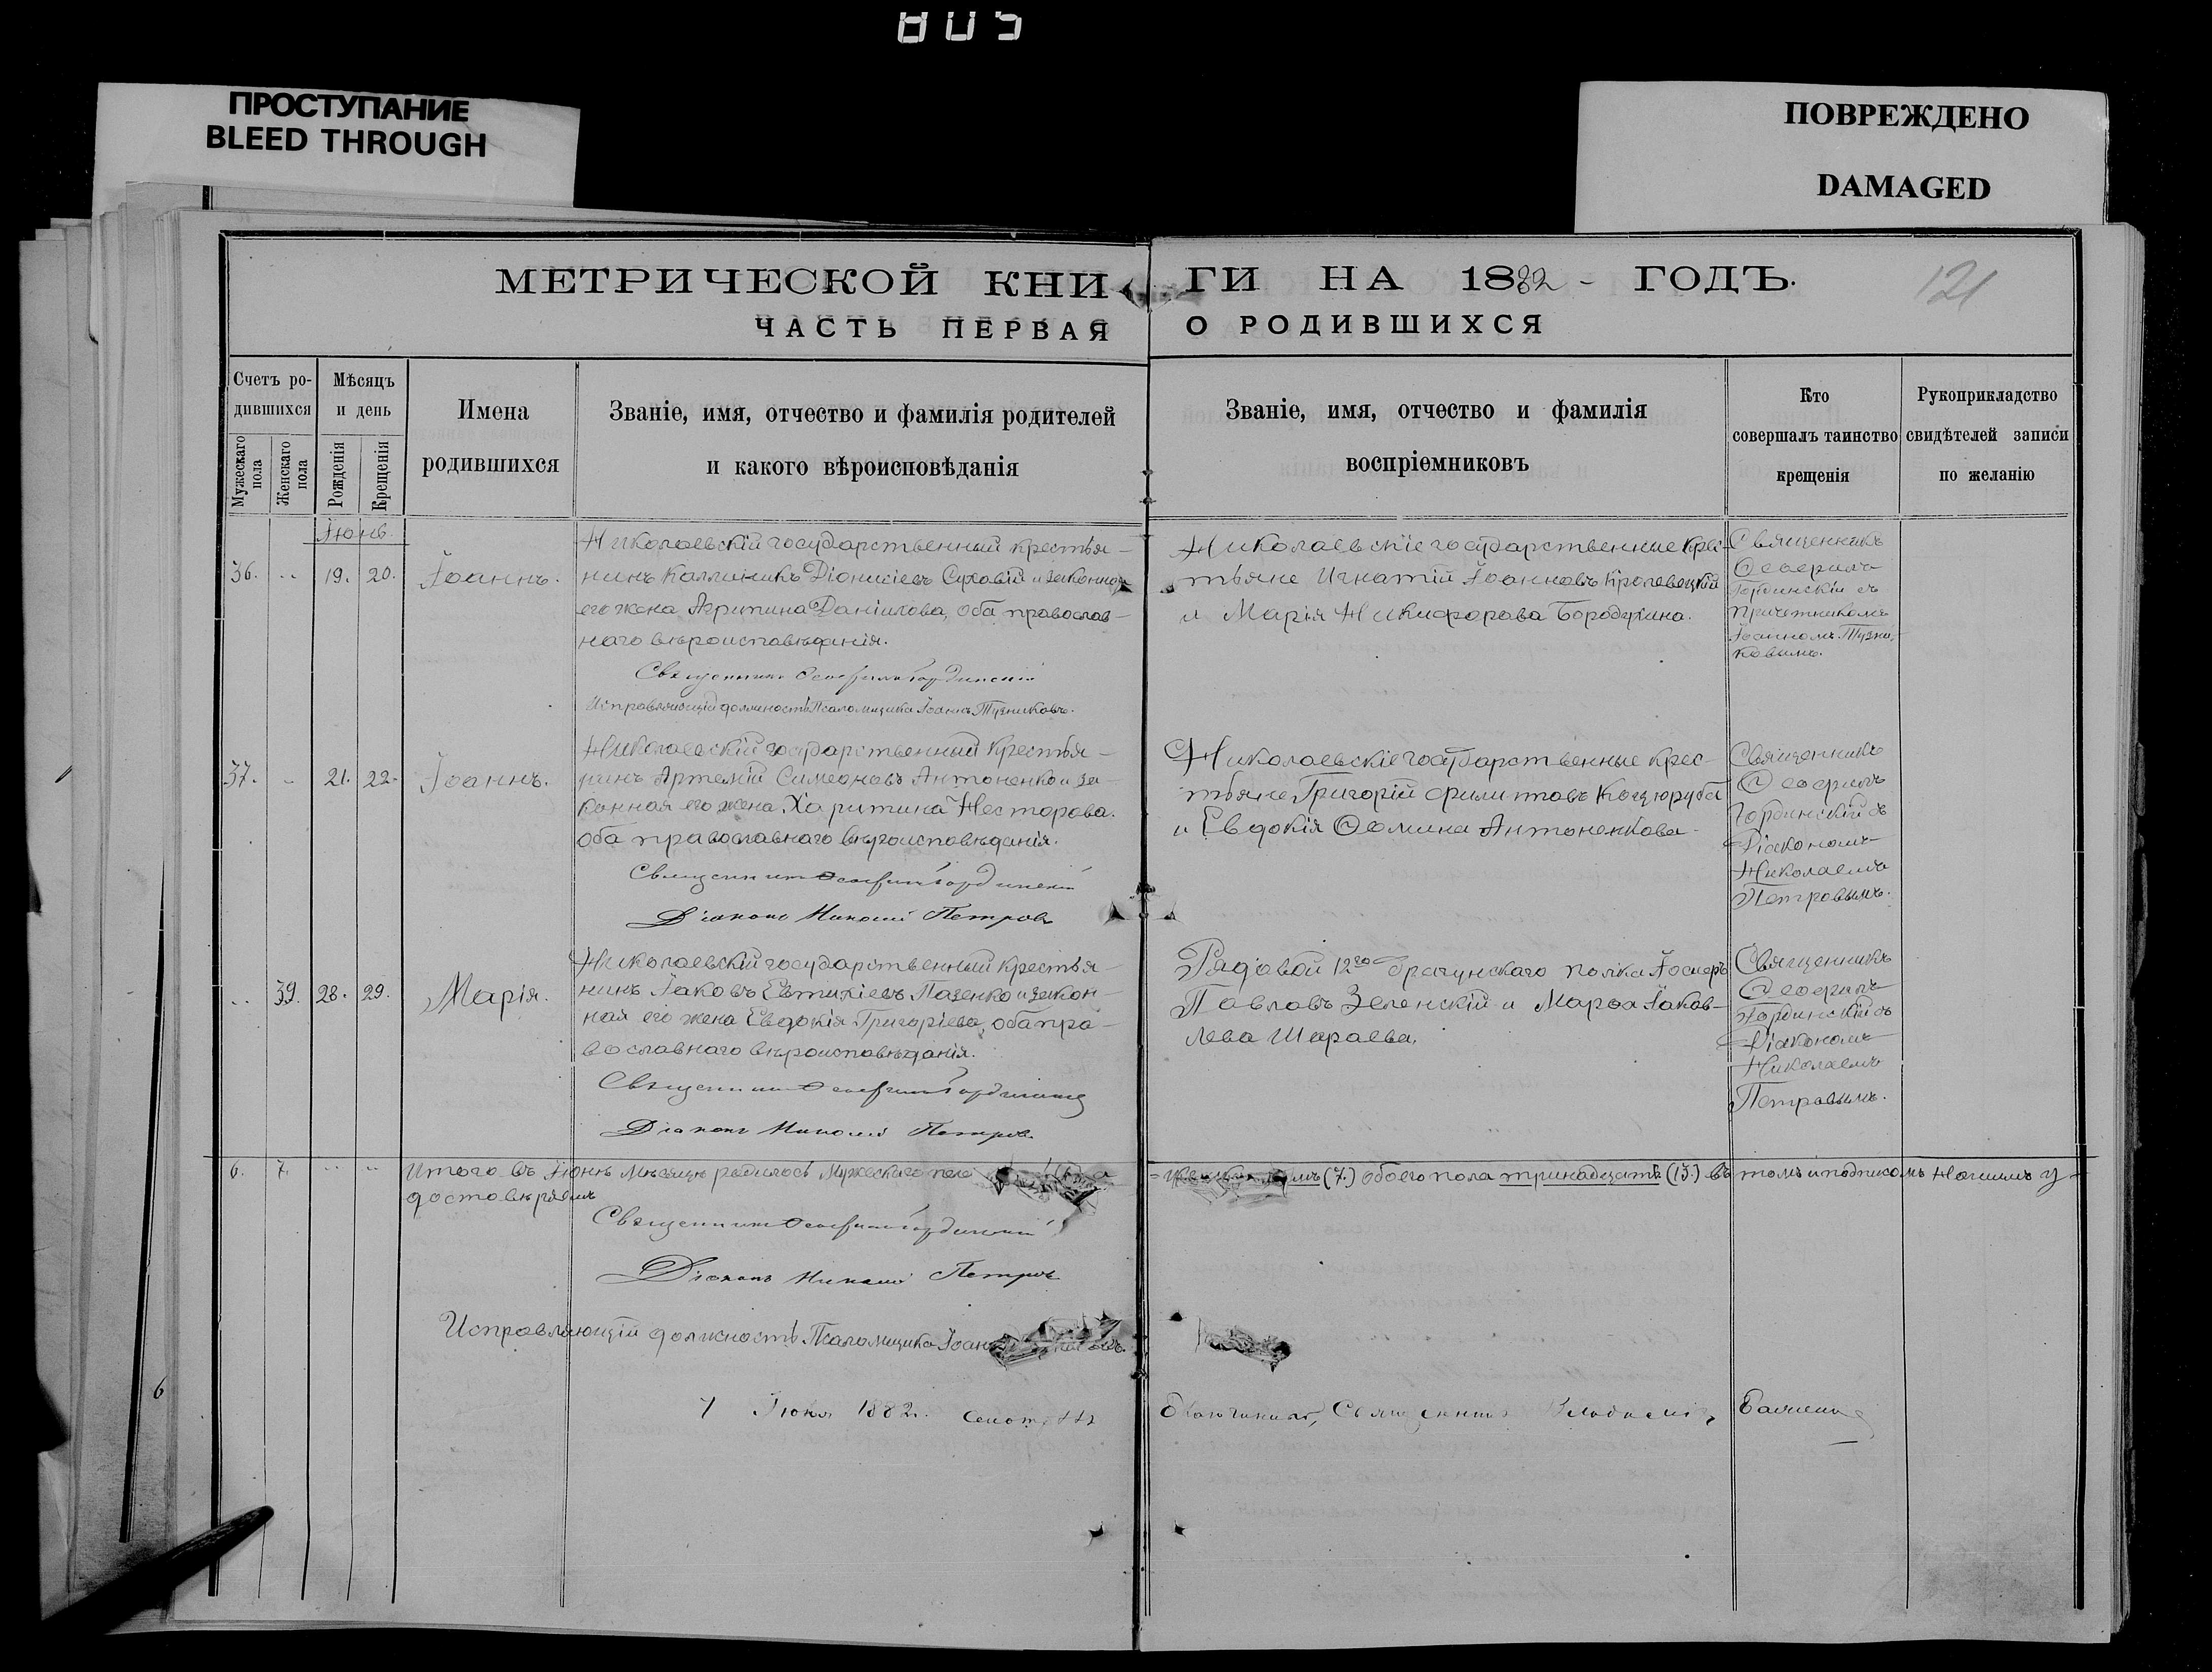 805
ПРОСТУПАНИЕ
BLEED THROUGH
ПОВРЕЖДЕНО
DAMAGED
МЕТРИЧЕСКОЙ КНИ
ГИ НА 1882 - ГОДЪ.
121
ЧАСТЬ ПЕРВАЯ
О РОДИВШИХСЯ
Счетъ ро-
дившихся
Мужескаго
пола
Женскаго
пола
Мѣсяцъ
и день
Рожденія
Крещенія
Имена
родившихся
Званіе, имя, отчество и фамилія родителей
и какого вѣроисповѣданія
Званіе, имя, отчество и фамилія
воспріемниковъ
Кто
совершалъ таинство
крещенія
Рукоприкладство
свидѣтелей записи
по желанію
Іюнь.
36. .. 19. 20. Іоаннъ.
Николаевскій государственный крестья-
нинъ Каллиникъ Діонисіевъ Суховій и законная
его жена Агрипина Даніилова, оба православ-
наго вѣроисповѣданія.
Священникъ Ѳеофилъ Гординскій
Исправляющій должность Псаломщика Іоаннъ Тузниковъ.
Николаевскіе государственные крес-
тьяне Игнатій Іоанновъ Кролевецкій
и Марія Никифорова Бородухина.
Священникъ
Ѳеофилъ
Гординскій съ
Причетникомъ
Іоанномъ Тузни-
ковымъ.
37. .. 21. 22. Іоаннъ.
Николаевскій государственный крестья-
нинъ Артемій Симеоновъ Антоненко и за-
конная его жена Харитина Несторова.
оба православнаго вѣроисповѣданія.
Священникъ Ѳеофилъ Гординскій
Діаконъ Николай Петровъ
Николаевскіе государственные крес-
тьяне Григорій Филиповъ Коцюруба
и Евдокія Ѳомина Антоненкова.
Священникъ
Ѳеофилъ
Гординскій съ
Діакономъ
Николаемъ
Петровымъ.
.. 39. 28. 29. Марія.
Николаевскій государственный крестья-
нинъ Іаковъ Евтихіевъ Пазенко и закон-
ная его жена Евдокія Григоріева, оба пра-
вославнаго вѣроисповѣданія.
Священникъ Ѳеофилъ Гординскій
Діаконъ Николай Петровъ
Рядовой 12го драгунскаго полка
Павловъ Зеленскій и Марѳа Іаков-
лева Шараева.
Священникъ
Ѳеофилъ
Гординскій съ
Діакономъ
Николаемъ
Петровымъ.
6. 7. .. .. Итого въ Іюнѣ мѣсяцѣ родилось мужескаго пола
(7.) обоего пола тринадцать (13.) въ томъ и подписомъ нашимъ у-
достовѣряемъ
Священникъ Ѳеофилъ Гординскій
Діаконъ Николай Петровъ
Исправляющій должность Псаломщика Іоаннъ
6
7 Іюля 1882 г.
Благочинный, Священникъ